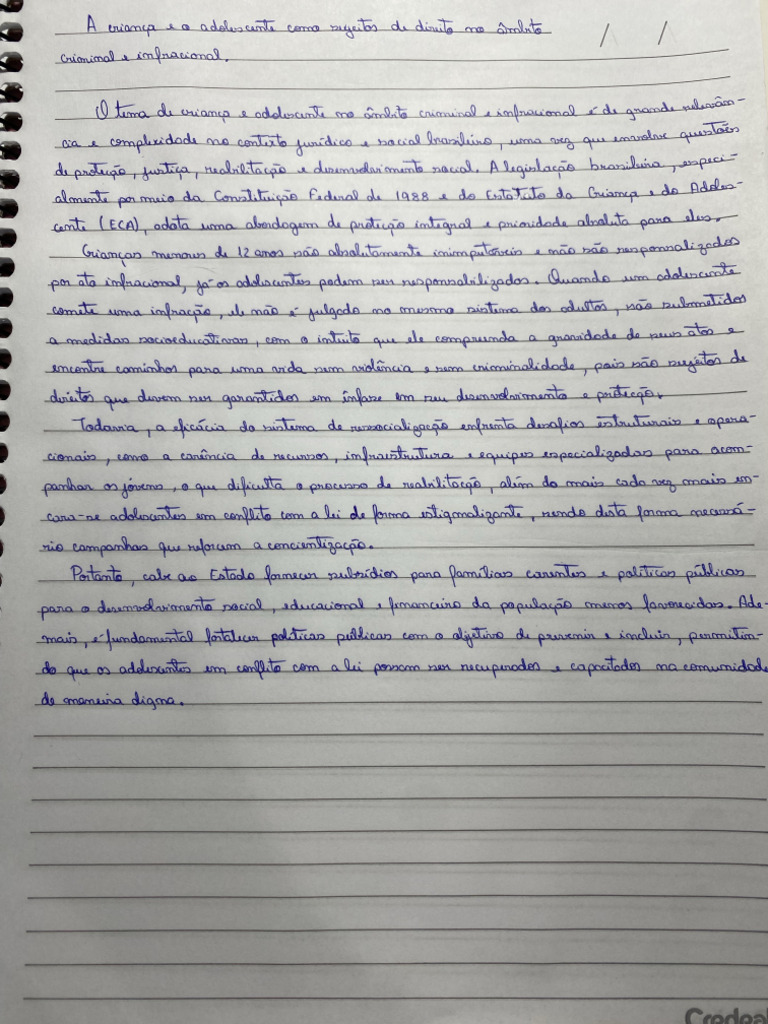 A criança e o adolescente como sujeitos de direito no âmbito
criminal e infracional.
/ /
O tema de criança e adolescente no âmbito criminal e infracional é de grande relevân-
cia e complexidade no contexto jurídico e social brasileiro, uma vez que envolve questões
de proteção, justiça, reabilitação e desenvolvimento social. A legislação brasileira, especi-
almente por meio da Constituição Federal de 1988 e do Estatuto da Criança e do Adoles-
cente (ECA), adota uma abordagem de proteção integral e prioridade absoluta para eles.
Crianças menores de 12 anos são absolutamente inimputáveis e não são responsalizados
por ato infracional, já os adolescentes podem ser responsabilizados. Quando um adolescente
comete uma infração, ele não é julgado no mesmo sistema dos adultos, são submetidos
a medidas socioeducativas, com o intuito que ele compreenda a gravidade de seus atos e
encontre caminhos para uma vida sem violência e sem criminalidade, pois são sujeitos de
direitos que devem ser garantidos em ênfase em seu desenvolvimento e proteção.
Todavia, a eficácia do sistema de ressocialização enfrenta desafios estruturais e opera-
cionais, como a carência de recursos, infraestrutura e equipes especializadas para acom-
panhar os jóvens, o que dificulta o processo de reabilitação, além do mais cada vez mais en-
cara-se adolescentes em conflito com a lei de forma estigmalizante, sendo dista forma necessá-
rio campanhas que reforcem a concientização.
Portanto, cabe ao Estado fornecer subsídios para famílias carentes e políticas públicas
para o desenvolvimento social, educacional e financeiro da população menos favorecidas. Ade-
mais, é fundamental fortalecer políticas públicas com o objetivo de prevenir e incluir, permitin-
do que os adolescentes em conflito com a lei possam ser recuperados e capacitados na comunidade
de maneira digna.